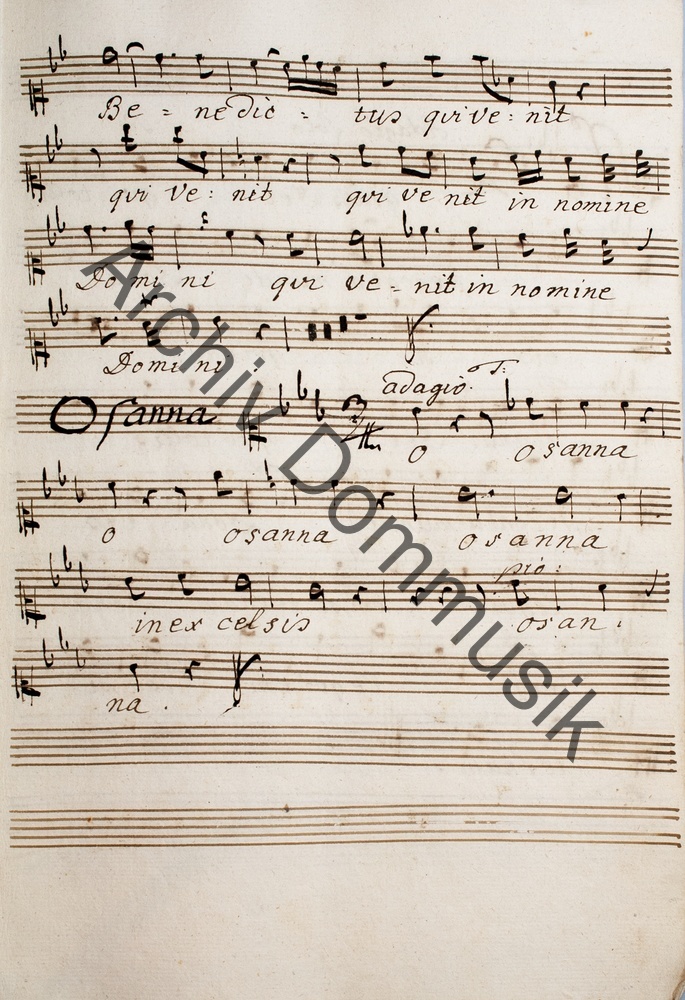 Be = nedic = tus qui ve : nit
qui ve : nit qui ve nit in nomine
Domini ni qui ve = nit in nomine
Domi ni .
adagio. T:
Osanna O osanna
O osanna osanna
pio :
in ex celsis osan :
na .
Archiv Dommusik